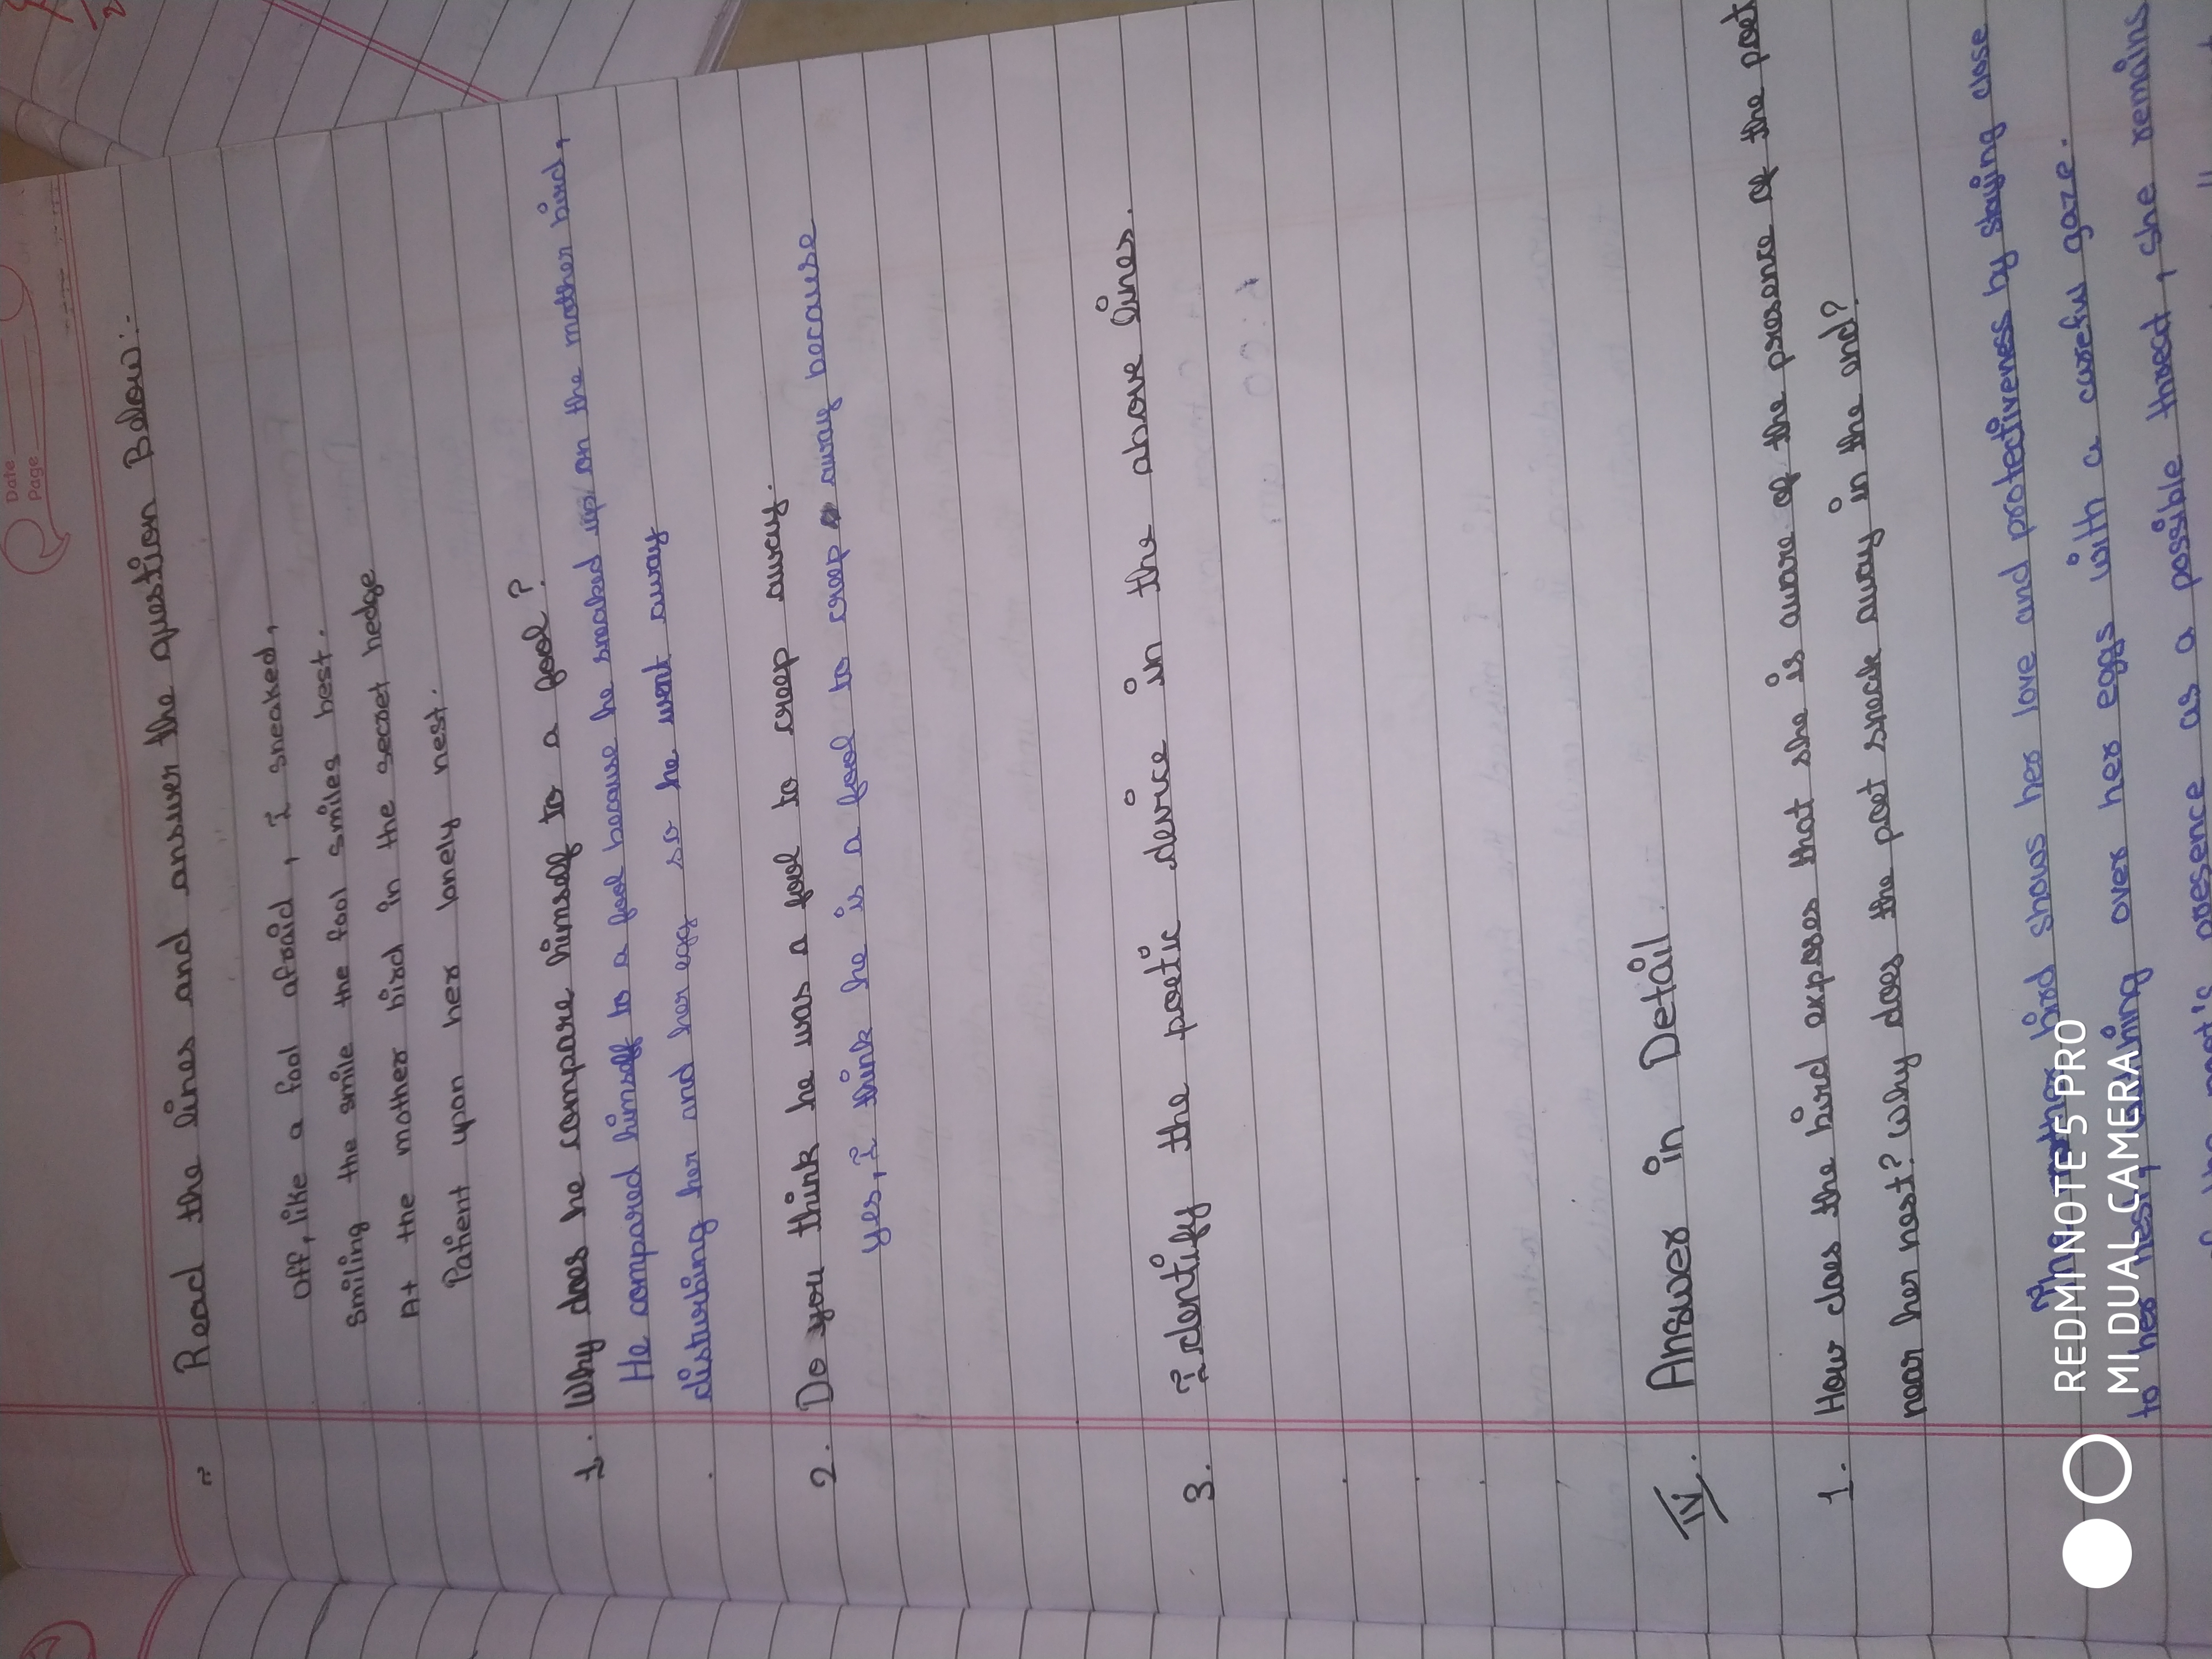 Date
Page
Read the lines and answer the question Below:-
Off, like a fool afraid, I sneaked,
Smiling the smile the fool smiles best.
At the mother bird in the secret hedge
Patient upon her lonely nest.
1. Why does he compare himself to a fool?
He compared himself to a fool because he sneaked up on the mother bird,
disturbing her and her egg so he went away
2. Do you think he was a fool to creep away.
yes, I think he is a fool to creep away because
3. Identify the poetic device in the above lines.
IV. Answer in Detail
1. How does the bird exposes that she is aware of the presence of the poet
near her nest? Why does the poet sneak away in the end?
The mother bird shows her love and protectiveness by staying close
to her nest, watching over her eggs with a careful gaze.
the poet's presence as a possible threat, she remains
REDMI NOTE 5 PRO
MI DUAL CAMERA